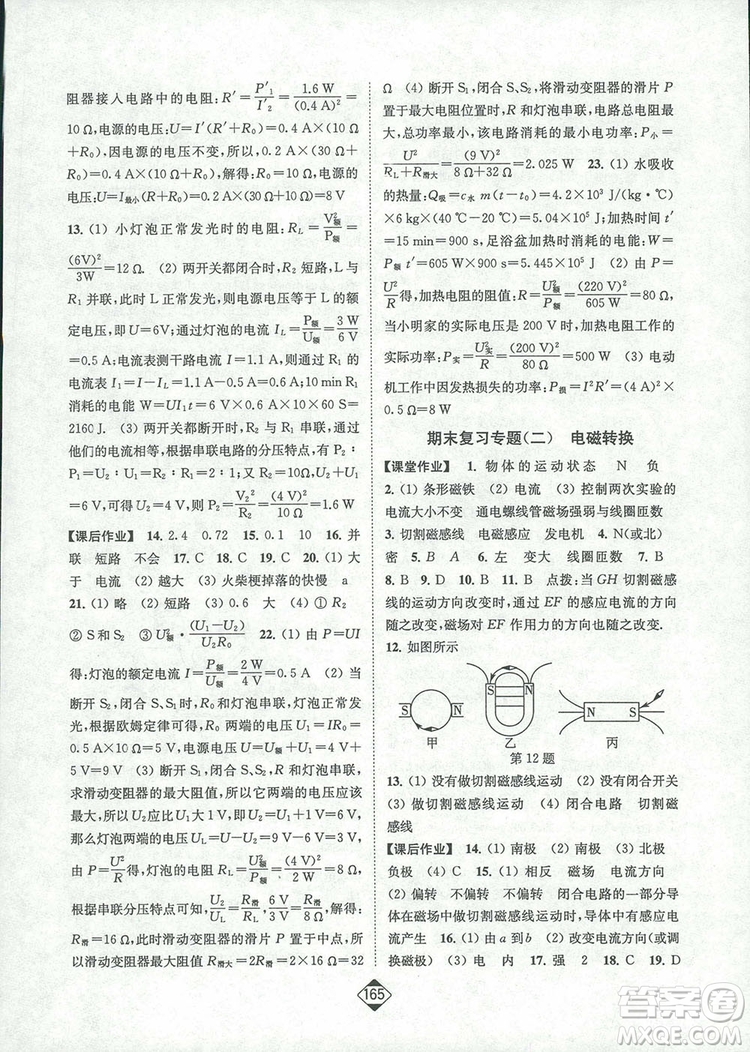 阻器接入电路中的电阻:R′=P′₁/I′₂=1.6 W/(0.4 A)²=
10 Ω,电源的电压:U=I′(R′+R₀)=0.4 A×(10 Ω+
R₀),因电源的电压不变,所以,0.2 A×(30 Ω+R₀)=
0.4 A×(10 Ω+R₀),解得:R₀=10 Ω,电源的
电压:U=I最小(R+R₀)=0.2 A×(30 Ω+10 Ω)=8 V
13. (1) 小灯泡正常发光时的电阻:R_L=V²额/P额=
(6V)²/3W=12 Ω (2) 两开关都闭合时,R₂ 短路,L 与
R₁ 并联,此时 L 正常发光,则电源电压等于灯的额
定电压,即 U=6V;通过灯泡的电流 I_L=P额/U额=3 W/6 V
=0.5 A;电流表测干路电流 I=1.1 A,则通过 R₁ 的
电流表 I₁=I−I_L=1.1 A−0.5 A=0.6 A;10min R₁
消耗的电能 W=UI₁t=6 V×0.6 A×10×60 S=
2160 J. (3) 两开关都断开时,R₁ 与 R₂ 串联,通过
他们的电流相等,根据串联电路的分压特点,有 P₂:
P₁=U₂:U₁=R₂:R₁=10:5=2:1 又因 U₁+U₂
=6 V,可得,U₂=4 V,P₂=V₂²/R₂=(4 V)²/10 Ω=1.6 W
【课后作业】 14. 2.4 0.72 15. 0.1 10 16. 并
联 短路 不会 17. C 18. C 19. C 20. (1) 大
于 电流 (2) 越大 (3) 火柴梗掉落的快慢 a
21. (1) 略 (2) 短路 (3) 0.6 大 (4) ① R₂
② S和S₂ ③ U²额·(U₁−U₂)/U₂R₀ 22. (1) 由 P=UI
得:灯泡的额定电流 I=P额/U额=2 W/4 V=0.5 A (2) 当闭
合 S、S₂,断开 S₁时,R₀ 和灯泡串联,灯泡正常发
光,根据欧姆定律可得,R₀ 两端的电压U₁=IR₀=
0.5 A×10 Ω=5 V,电源电压 U=U额+U₁=4 V+
5 V=9 V (3) 断开 S₁,闭合 S、S₂,R 和灯泡串联,
求滑动变阻器的最大阻值,则它分得的电压最大,
那么灯泡两端的电压 U_L=U−U₂=9 V−6 V=3 V
由 P=U²/R得,灯泡的电阻 R_L=U²额/P额=(4 V)²/2 W=8 Ω,
根据串联分压特点可知,U₂/U_L=R滑/R_L,6 V/3 V=R滑/8 Ω,解得:
R滑=16 Ω,此时滑动变阻器的滑片 P 置于中点,所
以滑动变阻器最大阻值 R滑大=2R滑=2×16 Ω=32
Ω (4) 断开 S₁,闭合 S、S₂,将滑动变阻器的滑片 P
置于最大电阻位置时,R 和灯泡串联,电路总电阻最
大,总功率最小,该电路消耗的最小电功率:P小=
U²/(R_L+R滑大)=(9 V)²/(8 Ω+32 Ω)=2.025 W 23. (1) 水吸收
的热量:Q吸=c水 m(t−t₀)=4.2×10³ J/(kg·℃)
×6 kg×(40 ℃−20 ℃)=5.04×10⁵ J (2) 加热时间 t′
=15 min=900 s,足浴盆加热时消耗的电能:W=
P额 t′=605 W×900 s=5.445×10⁵ J (3) 由 P=
U²/R得,加热电阻的阻值:R=U²额/P额=(220 V)²/605 W=80 Ω,
当小明家的实际电压是 200 V 时,加热电阻工作的
实际功率:P实=U²实/R=(200 V)²/80 Ω=500 W (3) 电动
机工作中因发热损失的功率:P=I²R′=(4 A)²×
0.5 Ω=8 W
期末复习专题(二) 电磁转换
【课堂作业】 1. 物体的运动状态 N 负
2. (1) 条形磁铁 (2) 电流 (3) 控制两次实验的
电流大小不变 通电螺线管磁场强弱与线圈匝数
3. 切割磁感线 电磁感应 发电机 4. N(或北)
密 5. B A 6. 左 变大 线圈匝数 7. B
8. B 9. D 10. C 11. B 点拨:当 GH 切割磁感
线的运动方向改变时,通过 EF 的感应电流的方向
随之改变,磁场对 EF 作用力的方向也随之改变.
12. 如图所示
S N 甲
S N 乙
N S 丙
第 12 题
13. (1) 没有做切割磁感线运动 (2) 没有闭合开关
(3) 做切割磁感线运动 (4) 闭合电路 切割磁
感线
【课后作业】 14. (1) 南极 (2) 南极 (3) 北极
负极 (4) C 15. (1) 相反 磁场 电流方向
(2) 偏转 不偏转 不偏转 闭合电路的一部分导
体在磁场中做切割磁感线运动时,导体中有感应电
流产生 16. (1) 由a 到b (2) 改变电流方向(或调
换磁极) (3) 电 内 17. 强 2 18. C 19. D
165
答案圈
MXQE.COM